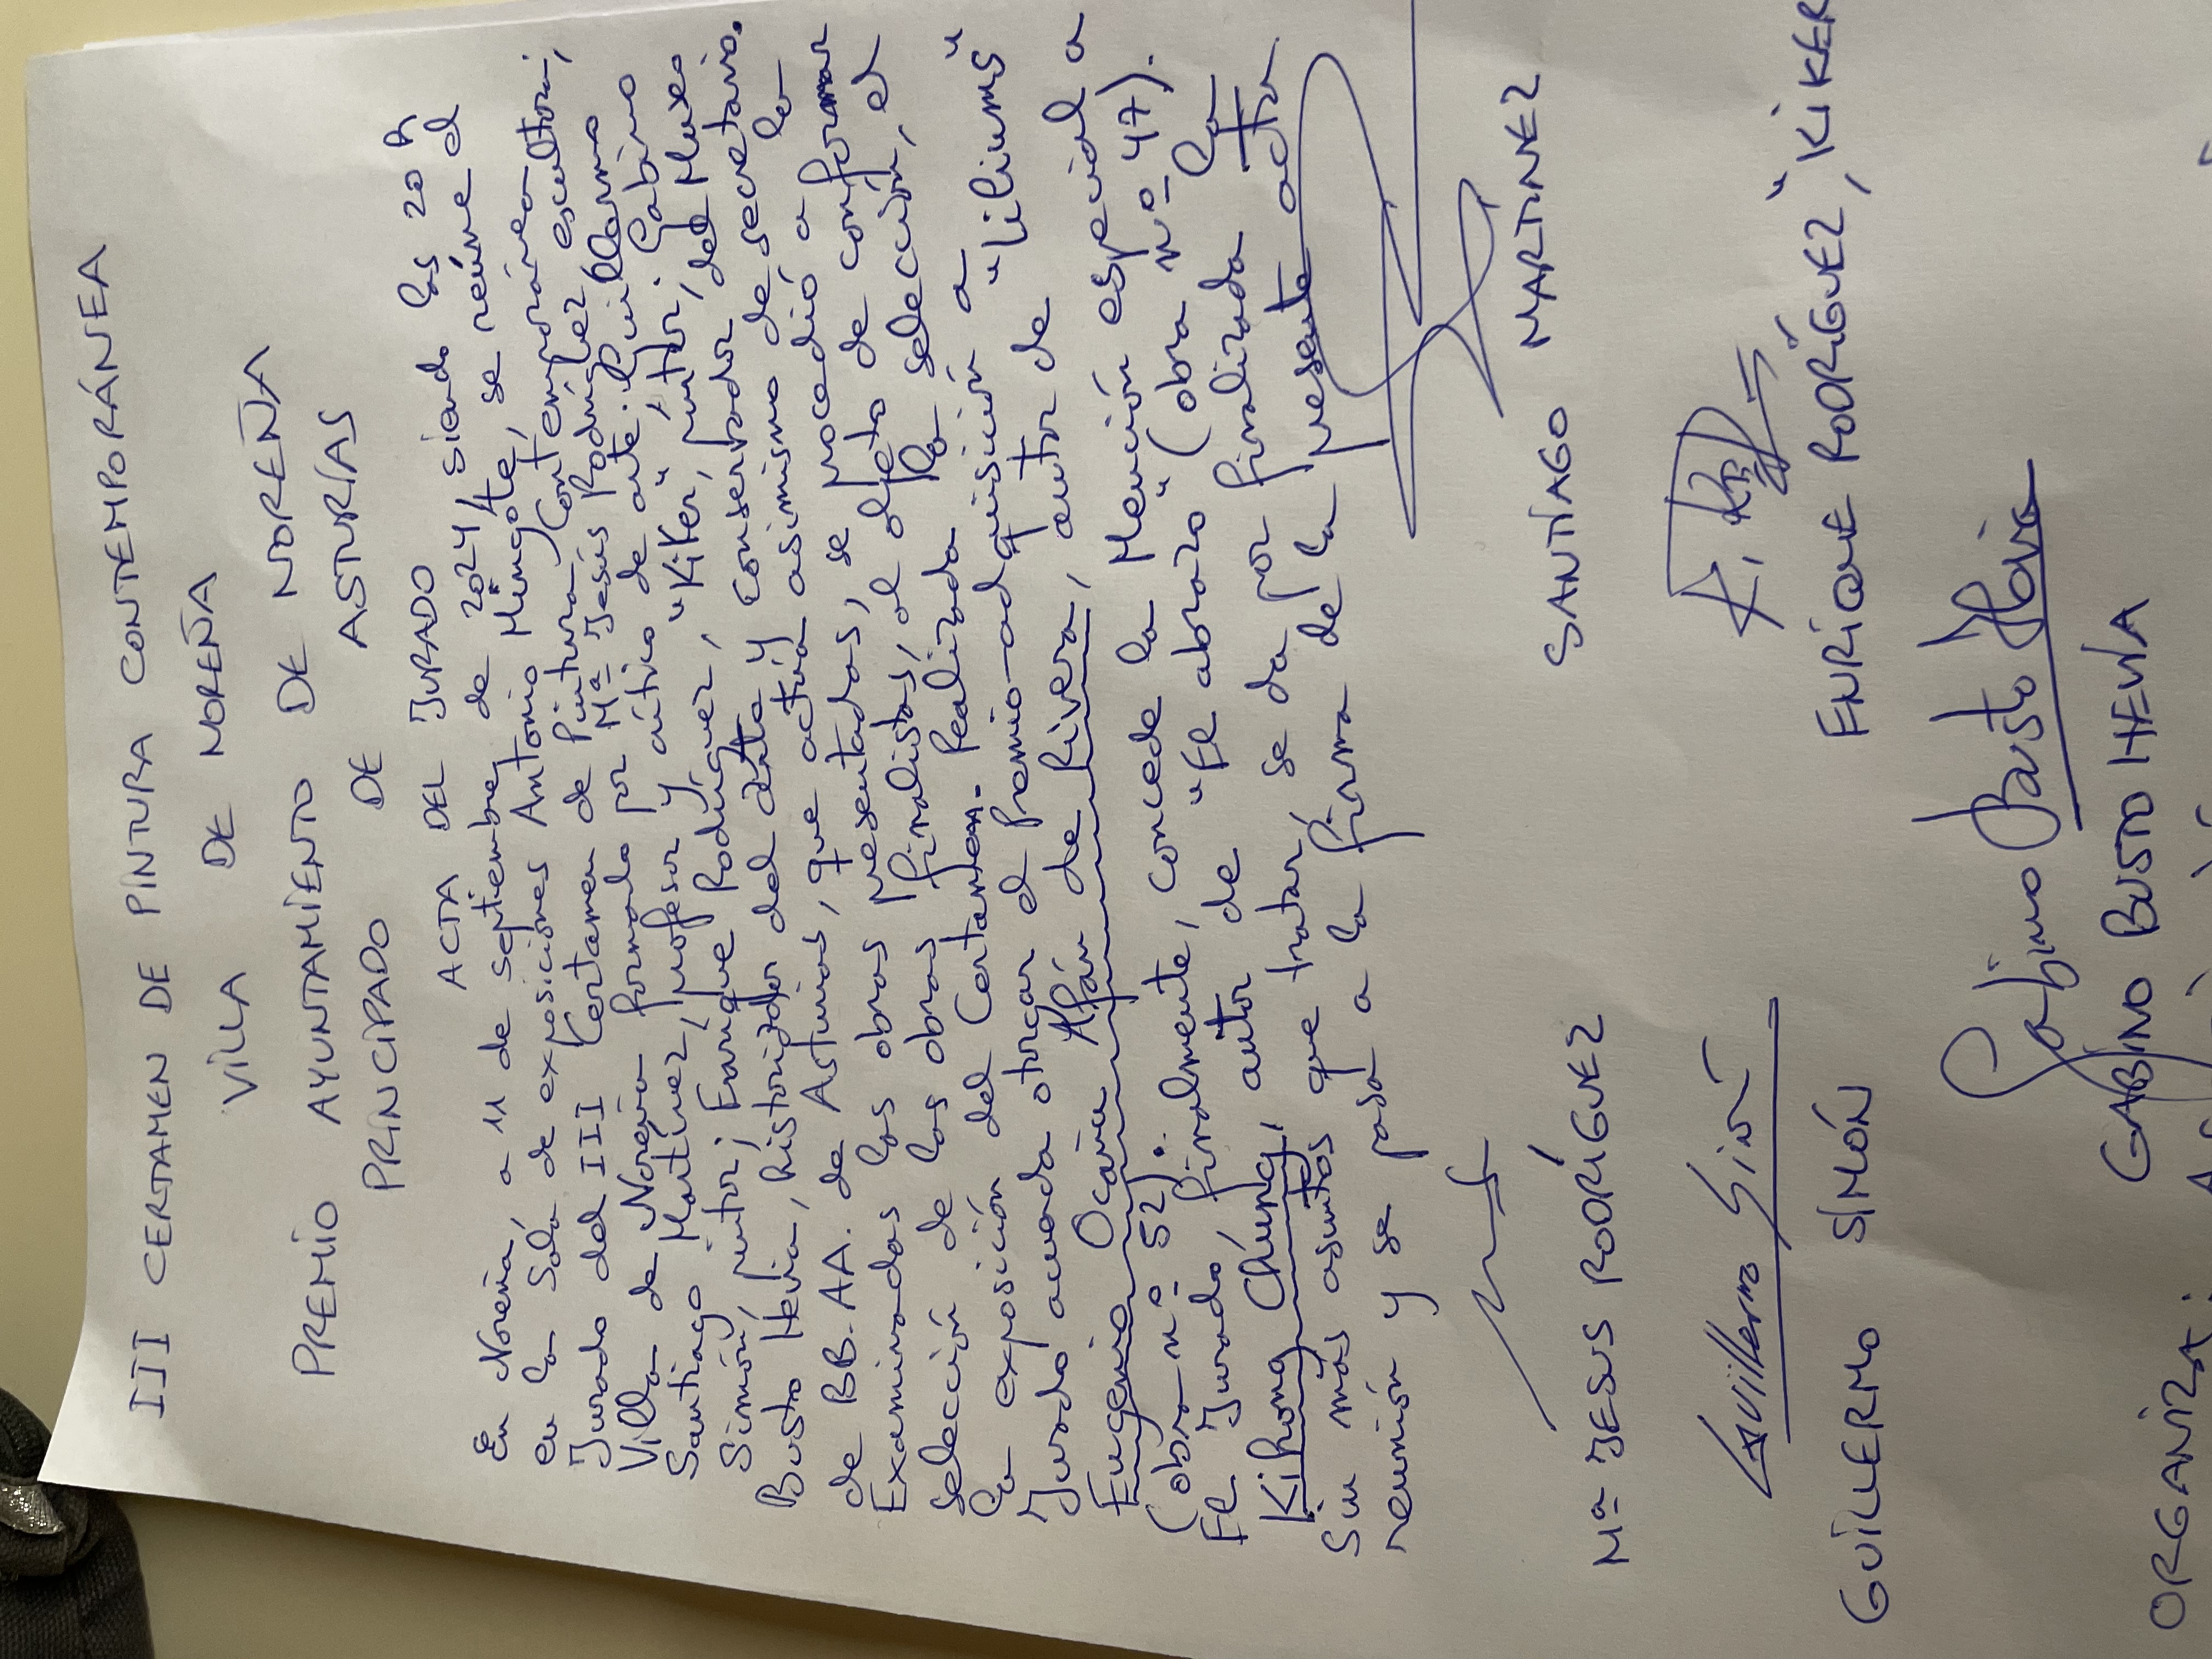 III CERTAMEN DE PINTURA CONTEMPORÁNEA
VILLA DE NOREÑA
PREMIO AYUNTAMIENTO DE NOREÑA
PRINCIPADO DE ASTURIAS
ACTA DEL JURADO
En Noreña, a 11 de septiembre de 2024, siendo las 20 h
en la Sala de exposiciones Antonio Mingote, se reúne el
Jurado del III Certamen de Pintura Contemporánea
Villa de Noreña formado por Mª Jesús Rodríguez escultora;
Santiago Martínez, profesor y crítico de arte; Guillermo
Simón, pintor; Enrique Rodríguez, "Kiker, pintor; Gabino
Busto Hevia, historiador del arte y Conservador del Museo
de BB.AA. de Asturias, que actúa asimismo de secretario.
Examinadas las obras presentadas, se procedió a la
selección de las obras finalistas, al objeto de conformar
la exposición del Certamen. Realizada la selección, el
Jurado acuerda otorgar el premio-adquisición a
Eugenio Ocaña Alfán de Rivera, autor de "Liliums"
(obra nº 52).
El Jurado, finalmente, concede la Mención especial a
Kihong Chung, autor de "El abrazo" (obra nº 47).
Sin más asuntos que tratar, se da por finalizada la
reunión y se pasa a la firma de la presente acta.
Mª JESUS RODRÍGUEZ SANTIAGO MARTINEZ
Guillermo Simón
GUILLERMO SIMÓN ENRIQUE RODRÍGUEZ, "KIKER
Gabino Busto Hevia
GABINO BUSTO HEVIA
ORGANIZA: